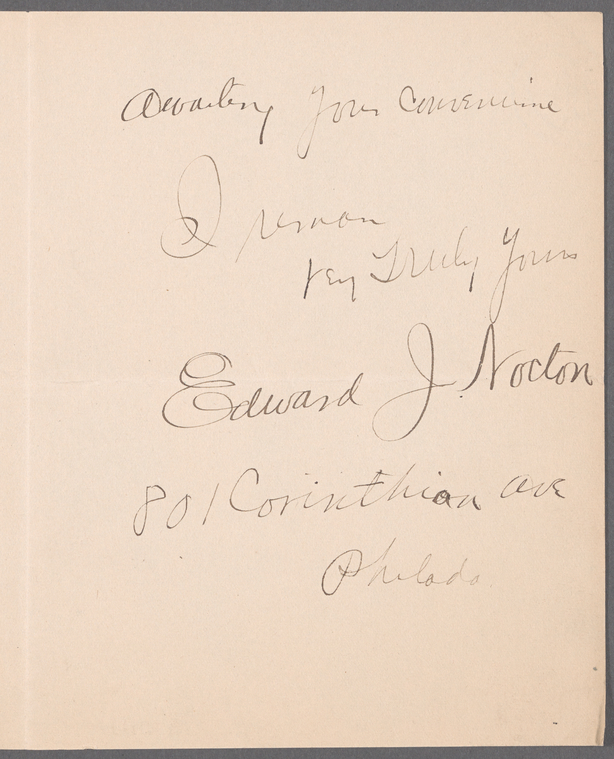 Awaiting your convenience
I remain
Very Truly Yours
Edward J. Norton
801 Corinthian ave
Philada